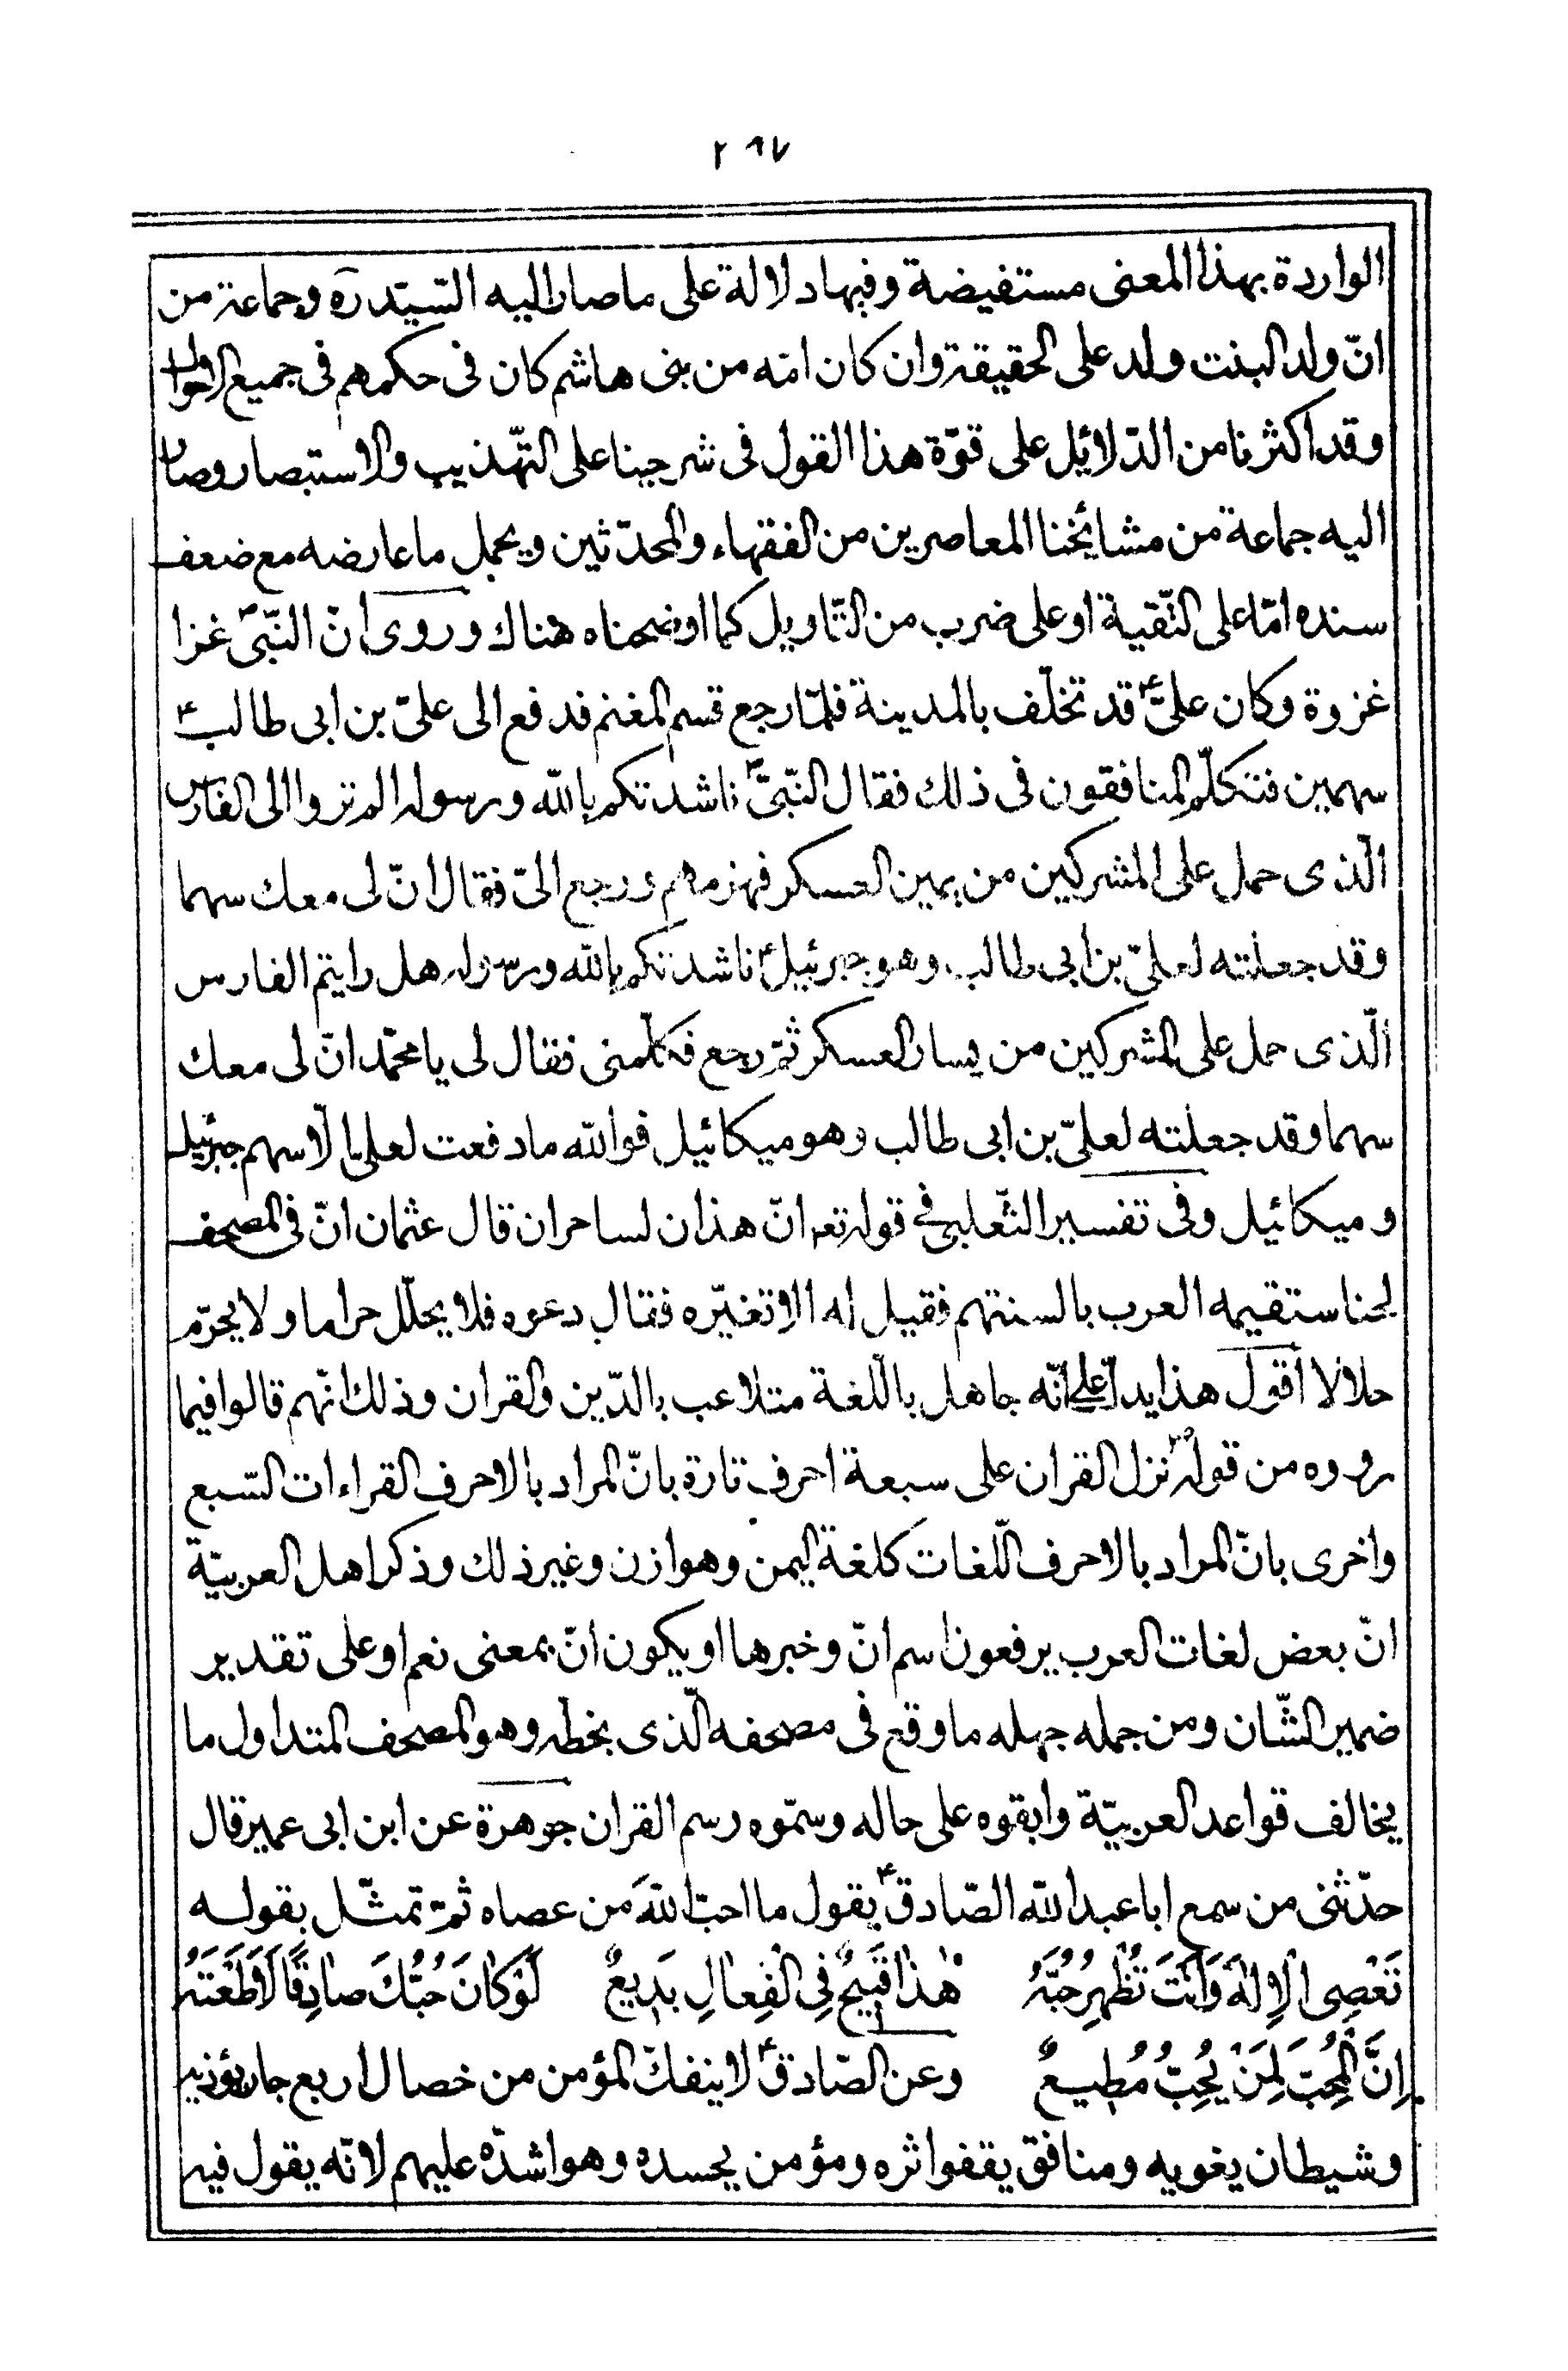 ٢٨٧
الواردة بهذا المعنى مستفيضة وفيها دلالة على ما صار اليه السّيّد ره وجماعة من
انّ ولد البنت ولد على الحقيقة وان كان امّه من بنى هاشم كان فى حكمهم فى جميع الاحوال
وقد اكثرنا من الدّلائل على قوّة هذا القول فى شرحينا على التّهذيب والاستبصار وصار
اليه جماعة من مشائخنا المعاصرين من الفقهاء والمحدّثين ويحمل ما عارضه مع ضعف
سنده امّا على التّقية او على ضرب من التّاويل كما اوضحناه هناك وروى انّ النّبىّ ص غزا
غزوة وكان علىّ ع قد تخلّف بالمدينة فلمّا رجع قسم المغنم فدفع الى علىّ بن ابى طالب ع
سهمين فتكلّم المنافقون فى ذلك فقال النّبىّ ص ناشدتكم بالله ورسوله الم تروا الى الفارس
الّذى حمل على المشركين من يمين العسكر فهزمهم ورجع الىّ فقال انّ لى معك سهما
وقد جعلته لعلىّ بن ابى طالب وهو جبرئيل ع ناشدتكم بالله ورسوله هل رايتم الفارس
الّذى حمل على المشركين من يسار العسكر ثمّ رجع فكلّمنى فقال لى يا محمّد انّ لى معك
سهما وقد جعلته لعلىّ بن ابى طالب وهو ميكائيل فوالله ما دفعت لعلى الّا سهم جبرئيل
وميكائيل وفى تفسير الثّعلبى فى قوله تعه انّ هذان لساحران قال عثمان انّ فى المصحف
لحنا ستقيمه العرب بالسنتهم فقيل له الا تغيّره فقال دعوه فلا يحلّل حراما ولا يحرّم
حلالا اقول هذا يدلّ على انّه جاهل باللّغة متلاعب بالدّين والقران وذلك انّهم قالوا فيما
رووه من قوله ص نزل القران على سبعة احرف تارة بانّ المراد بالاحرف القراءات السّبع
واخرى بانّ المراد بالاحرف اللّغات كلغة اليمن وهوازن وغير ذلك وذكر اهل العربيّة
انّ بعض لغات العرب يرفعون اسم انّ وخبرها او يكون انّ بمعنى نعم او على تقدير
ضمير الشّان ومن جمله جهله ما وقع فى مصحفه الّذى بخطه وهو المصحف المتداول ما
يخالف قواعد العربيّة وابقوه على حاله وسمّوه رسم القران جوهرة عن ابن ابى عمير قال
حدّثنى من سمع ابا عبد الله الصّادق ع يقول ما احبّ اللهَ من عصاه ثمّ تمثّل بقوله
تَعْصِى الْاِلٰهَ وَاَنْتَ تُظْهِرُ حُبَّهُ هٰذا قَبيحٌ فِى الْفِعالِ بَديعٌ لَوْ كانَ حُبُّكَ صادِقًا لَاَطَعْتَهُ
اِنَّ الْمُحِبَّ لِمَنْ يُحِبُّ مُطيعٌ وعن الصّادق ع لا ينفكّ المؤمن من خصال اربع جار يؤذيه
وشيطان يغويه ومنافق يقفوا اثره ومؤمن يحسده وهو اشدّه عليهم لانّه يقول فيه